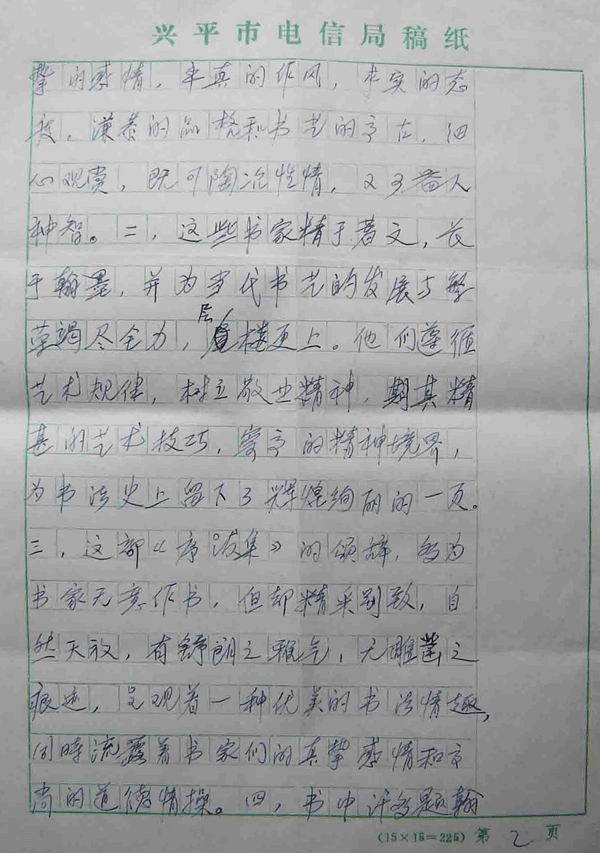 兴平市电信局稿纸
挚的感情，率真的作风，求实的态
度，谦恭的品格和书艺的高古，细
心观赏，既可陶冶性情，又可益人
神智。二，这些书家精于著文，长
于翰墨，并为当代书艺的发展与繁
荣竭尽全力，层楼更上。他们遵循
艺术规律，树立敬业精神，期其精
甚的艺术技巧，崇高的精神境界，
为书法史上留下了辉煌绚丽的一页。
三，这部《序跋集》的颂辞，多为
书家无意作书，但却精采别致，自
然天放，有舒朗之雅气，无雕凿之
痕迹，呈观着一种优美的书法情趣，
同时流露着书家们的真挚感情和高
尚的道德情操。四，书中许多题翰
(15×15=225) 第 2 页